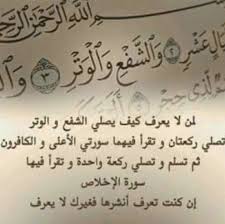 بسم الله الرحمن الرحيم
عشر ٢ والشفع والوتر ٣
لمن لا يعرف كيف يصلي الشفع و الوتر
تصلي ركعتان و تقرأ فيهما سورتي الأعلى و الكافرون
ثم تسلم و تصلي ركعة واحدة و تقرأ فيها
سورة الإخلاص
إن كنت تعرف أنشرها فغيرك لا يعرف